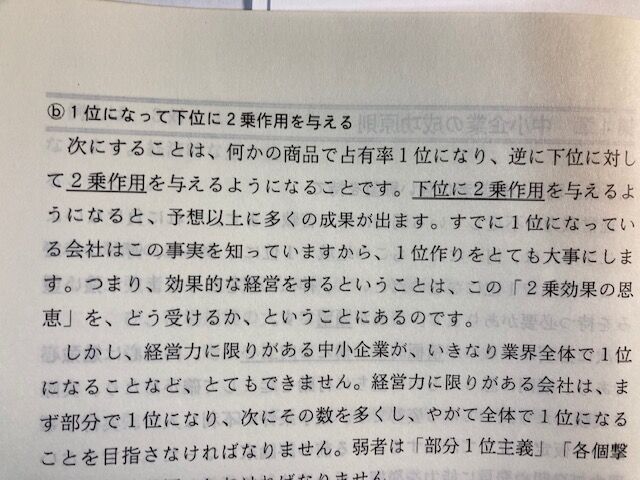 ⓑ１位になって下位に２乗作用を与える
次にすることは、何かの商品で占有率１位になり、逆に下位に対し
て２乗作用を与えるようになることです。下位に２乗作用を与えるよ
うになると、予想以上に多くの成果が出ます。すでに１位になってい
る会社はこの事実を知っていますから、１位作りをとても大事にしま
す。つまり、効果的な経営をするということは、この「２乗効果の恩
恵」を、どう受けるか、ということにあるのです。
しかし、経営力に限りがある中小企業が、いきなり業界全体で１位
になることなど、とてもできません。経営力に限りがある会社は、ま
ず部分で１位になり、次にその数を多くし、やがて全体で１位になる
ことを目指さなければなりません。弱者は「部分１位主義」「各個撃